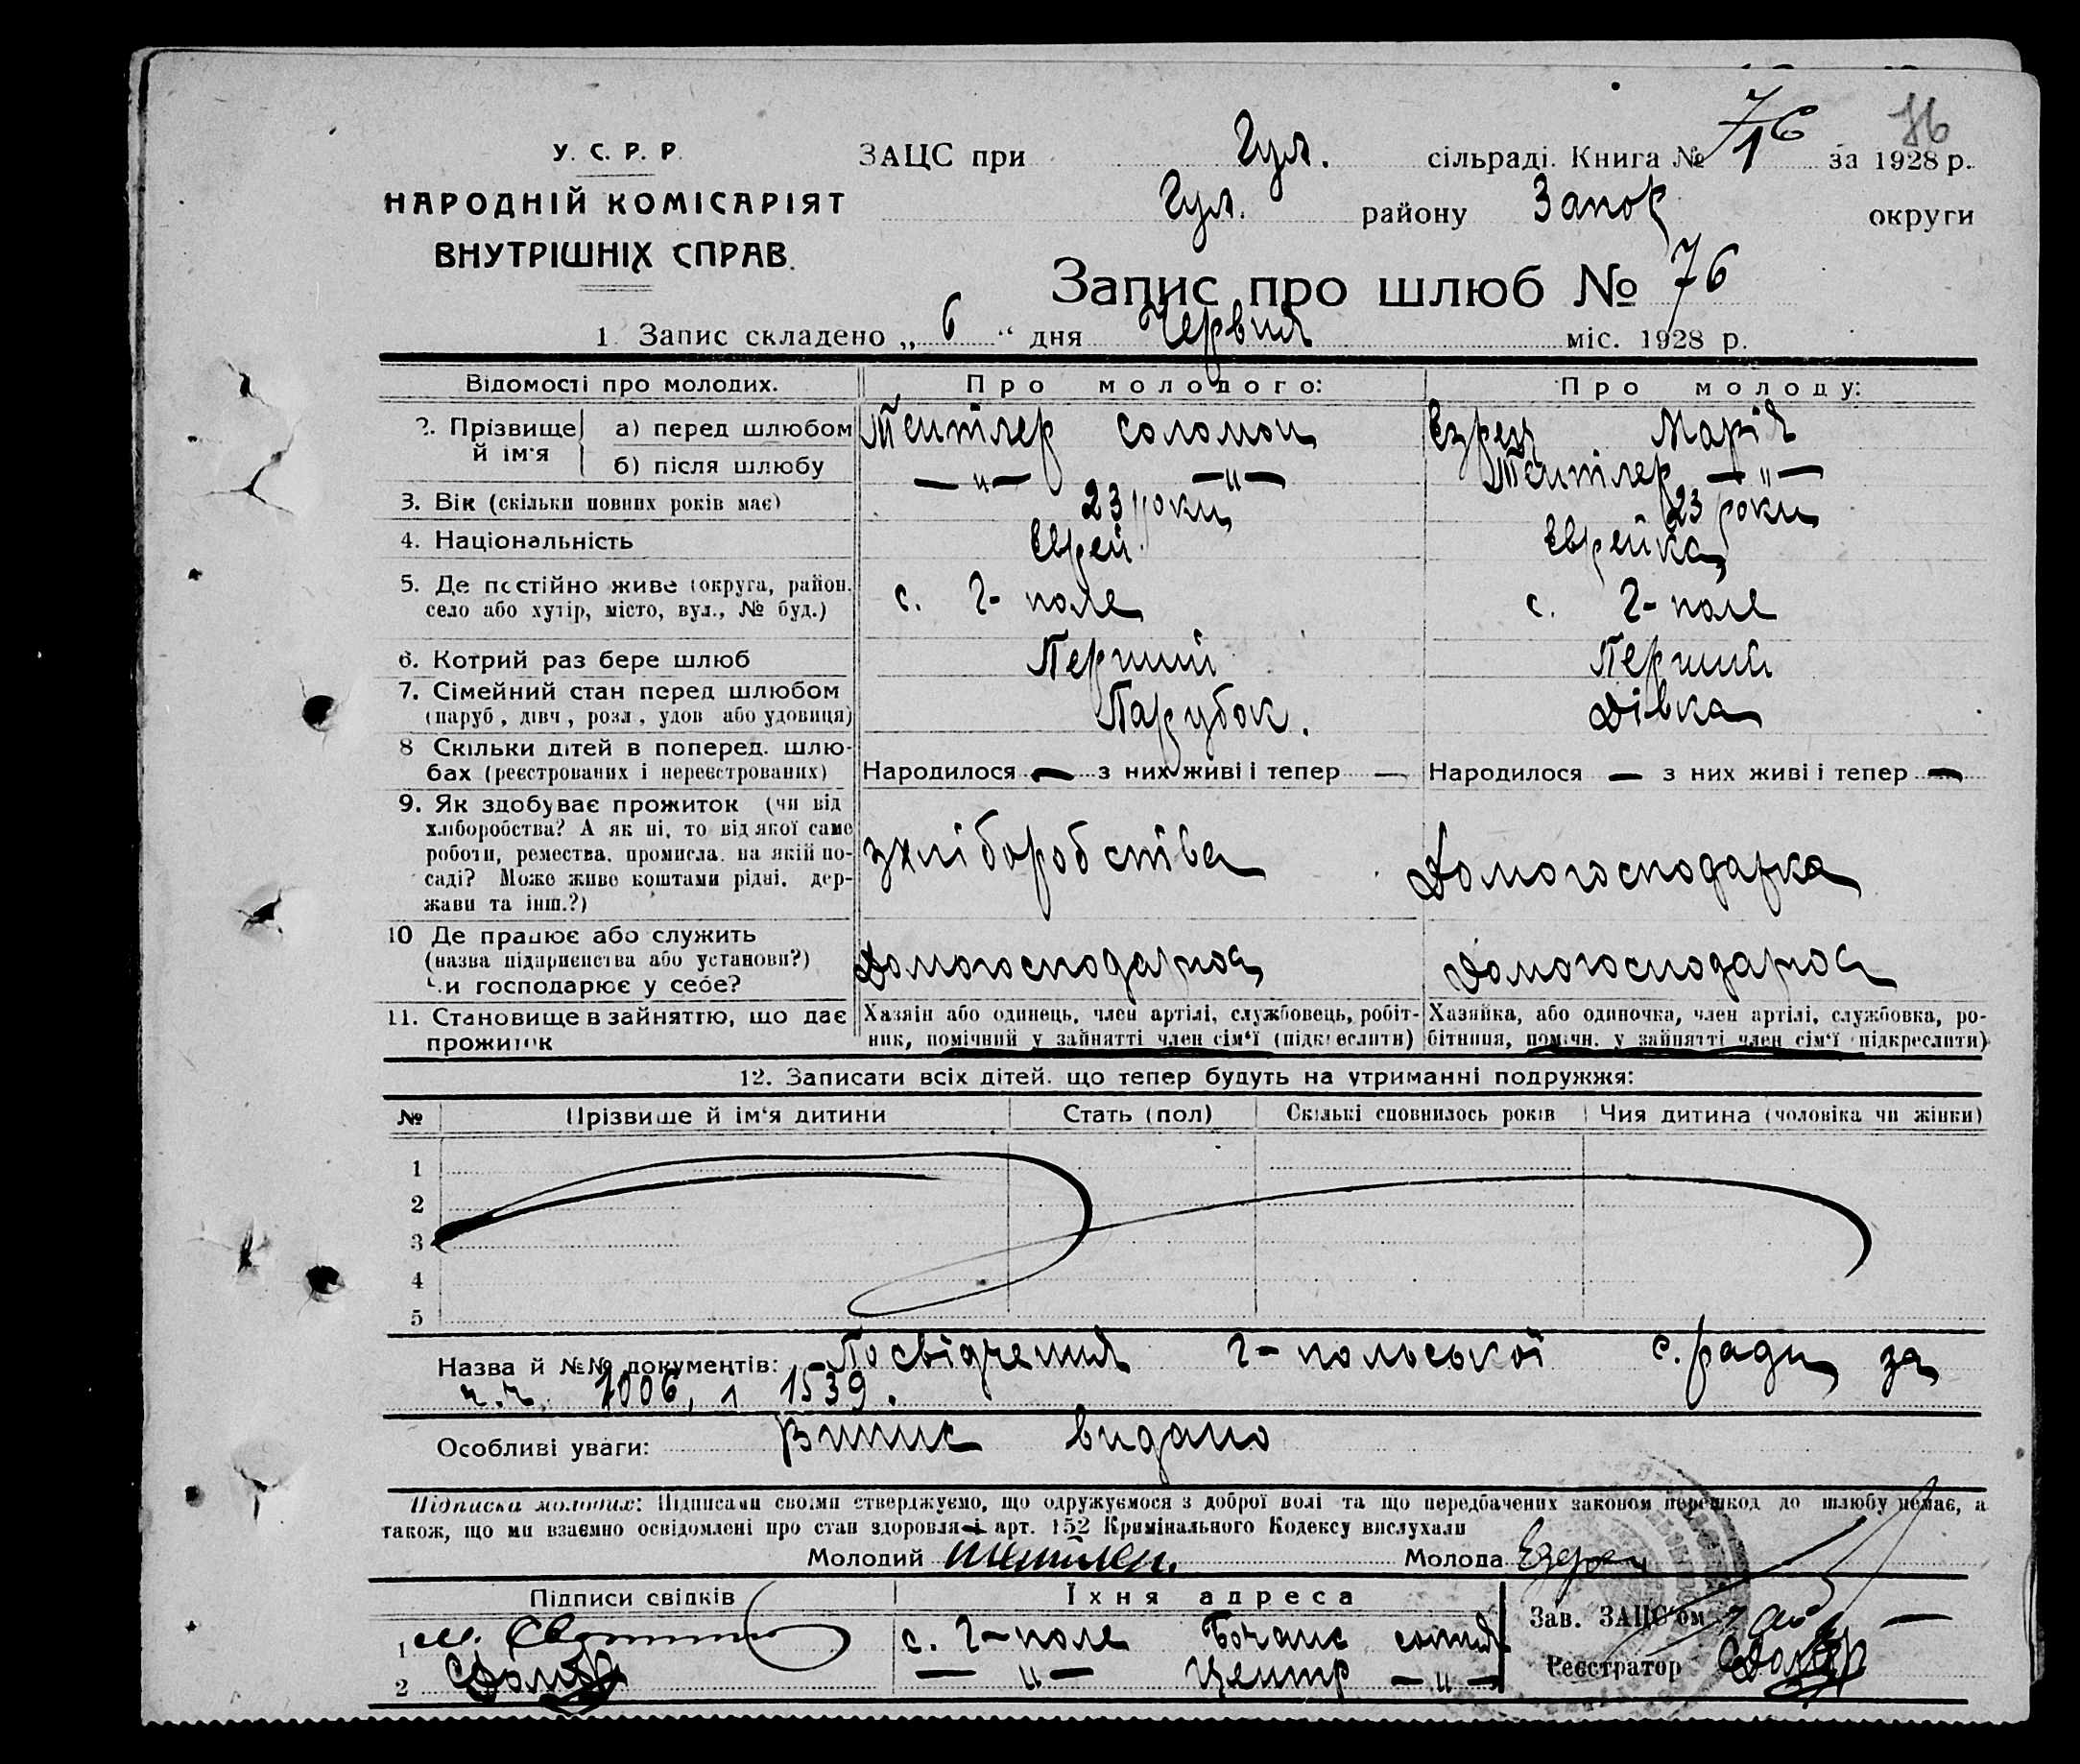 У. С. Р. Р.
НАРОДНІЙ КОМІСАРІЯТ
ВНУТРІШНІХ СПРАВ.
76
ЗАЦС при Гул. сільраді. Книга № за 1928 р.
Гул. району Запор округи
Запис про шлюб № 76
1. Запис складено „ 6 “ дня Червня міс. 1928 р.
Відомості про молодих. Про молодого: Про молоду:
2. Прізвище й ім'я
а) перед шлюбом Тентлер Соломон Езрец Марія
б) після шлюбу — „ — — „ — Тентлер — „ —
3. Вік (скільки повних років має) 23 роки 23 роки
4. Національність Еврей Еврейка
5. Де постійно живе (округа, район, с. Г-поле с. Г-поле
село або хутір, місто, вул., № буд.)
6. Котрий раз бере шлюб Перший Перший
7. Сімейний стан перед шлюбом Парубок. Дівка
(паруб, дівч, розл, удов або удовиця)
8 Скільки дітей в поперед. шлю-
бах (реєстрованих і нереєстрованих) Народилося — з них живі і тепер — Народилося — з них живі і тепер —
9. Як здобуває прожиток (чи від
хліборобства? А як ні, то від якої саме
роботи, ремества, промисла, на якій по-
саді? Може живе коштами рідні, дер-
жави та інш.?)
зхліборобства Домогосподарка
10 Де працює або служить
(назва підприємства або установи?)
чи господарює у себе?
Домогосподарноа Домогосподарноа
11. Становище в зайняттю, що дає
прожиток
Хазяїн або одинець, член артілі, службовець, робіт-
ник, помічний у зайнятті член сім'ї (підкреслити)
Хазяйка, або одиночка, член артілі, службовка, ро-
бітниця, помічн. у зайнятті член сім'ї (підкреслити)
12. Записати всіх дітей, що тепер будуть на утриманні подружжя:
№ Прізвище й ім'я дитини Стать (пол) Скількі сповнилось років Чия дитина (чоловіка чи жінки)
1
2
3
4
5
Назва й №№ документів: Посвідчення Г-польської с.ради за
ч.ч. 1006, і 1539.
Особливі уваги: Випис видано
Підписка молодих: Підписами своїми стверджуємо, що одружуємося з доброї волі та що передбачених законом перешкод до шлюбу немає, а
також, що ми взаємно освідомлені про стан здоровля і арт. 152 Кримінального Кодексу вислухали
Молодий Молода
Підписи свідків Їхня адреса
1 с. Г-поле сотня
2 — „ — Центр — „ —
Зав. ЗАЦС'ом
Реєстратор